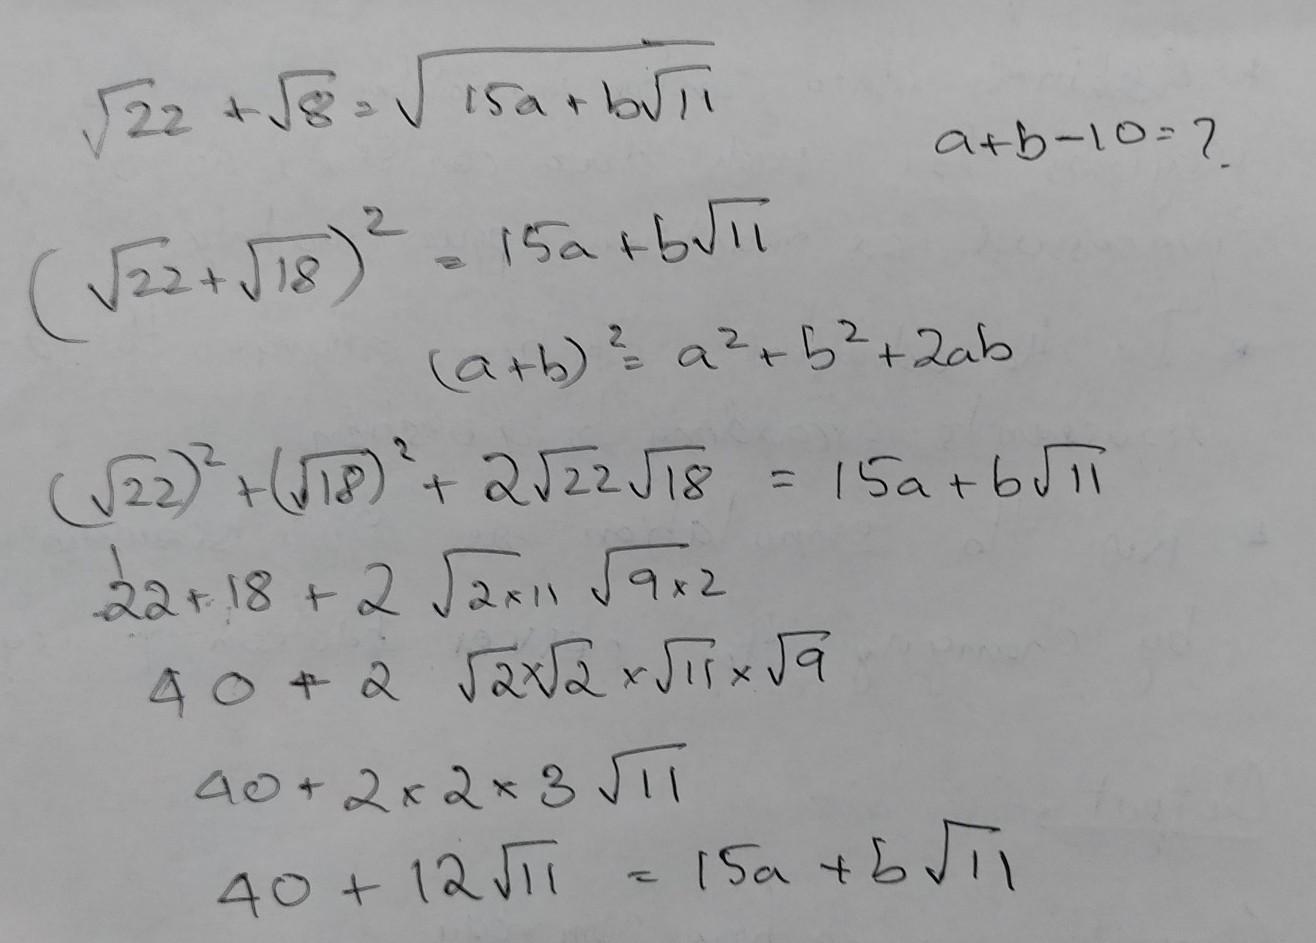 √22 + √8 = √(15a + b√11)
a+b-10=?
(√22 + √18)² = 15a + b√11
(a+b)² = a² + b² + 2ab
(√22)² + (√18)² + 2√22√18 = 15a + b√11
22 + 18 + 2 √2×11 √9×2
40 + 2 √2×√2 ×√11×√9
40 + 2×2×3√11
40 + 12√11 = 15a + b√11